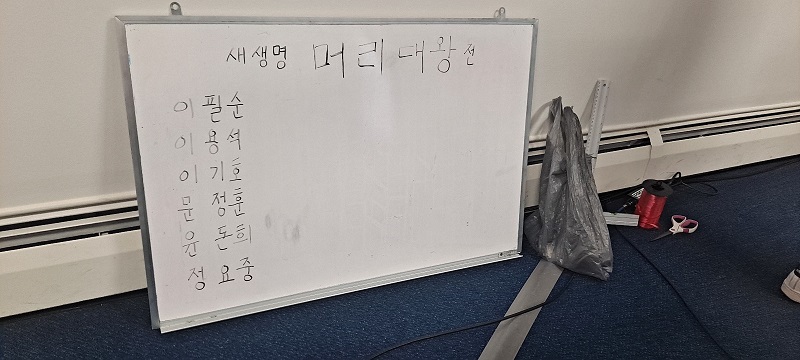 새생명 머리대왕전
이 필순
이 용석
이 기호
문 정훈
윤 돈희
정 요중